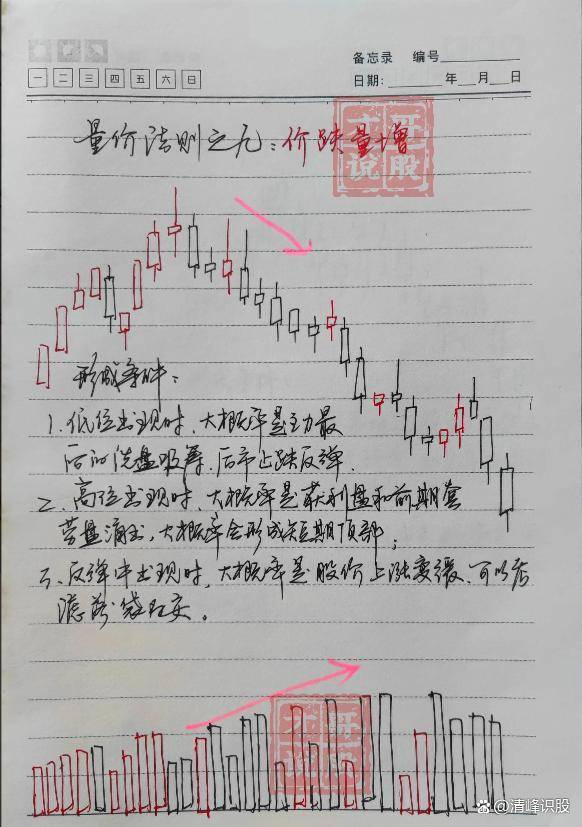 备忘录 编号
一 二 三 四 五 六 日
日期: 年 月 日
量价法则之九：价跌量增
哥股
说
形成条件：
1.低位出现时、大概率是主力最
后的洗盘吸筹、后市止跌反弹.
二、高位出现时、大概率是获利盘和前期套
劳盘涌出，大概率会形成短期顶部；
三、反弹中出现时，大概率是股价上涨变缓、可以考
滤落袋为安。
哥
股
说
@清峰识股